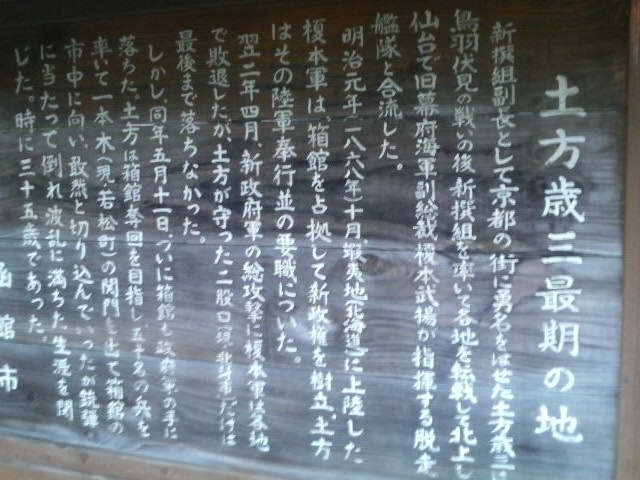 土方歳三最期の地
新撰組副長として京都の街に勇名をはせた土方歳三は
鳥羽伏見の戦いの後新撰組を率いて各地を転戦して北上し
仙台で旧幕府海軍副総裁榎本武揚が指揮する脱走
艦隊と合流した。
明治元年(一八六八年)十月、蝦夷地(北海道)に上陸した
榎本軍は、箱館を占拠して新政権を樹立、土方
はその陸軍奉行並の要職についた。
翌二年四月、新政府軍の総攻撃に榎本軍は各地
で敗退したが、土方が守った二股口(現・北斗市)だけは
最後まで落ちなかった。
しかし、同年五月十一日、ついに箱館も政府軍の手に
落ちた、土方は箱館奪回を目指し、五十名の兵を
率いて一本木(現・若松町)の関門を出て箱館の
市中に向い、敢然と切り込んでいったが銃弾
に当たって倒れ波乱に満ちた生涯を閉
じた。時に三十五歳であった。
函館市